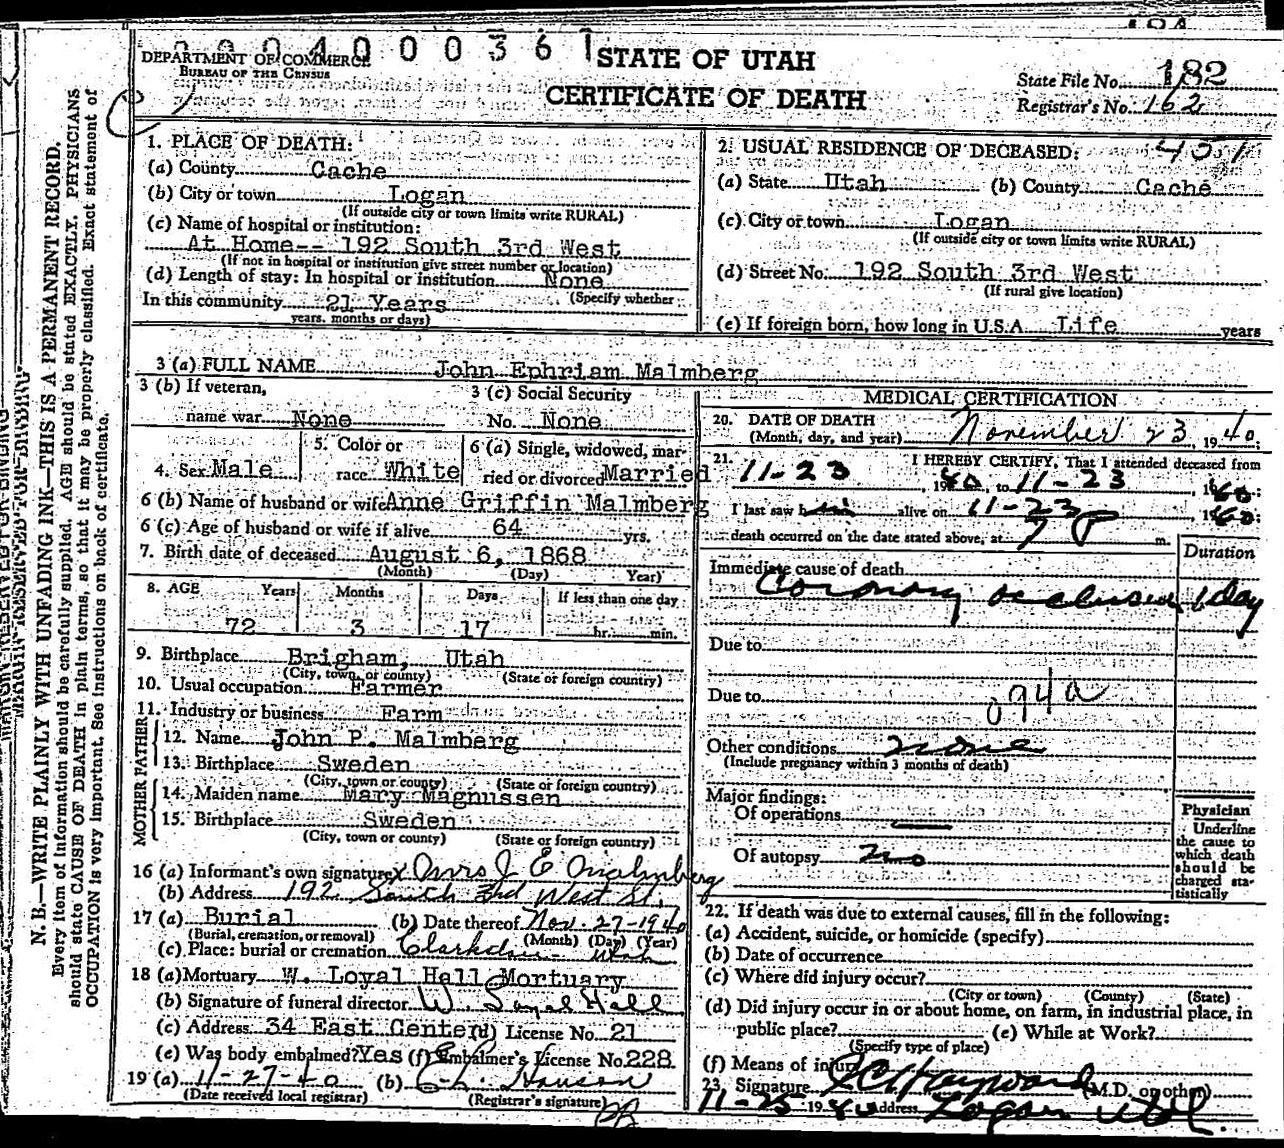 0 0 0 4 0 0 0 3 6 1
DEPARTMENT OF COMMERCE
BUREAU OF THE CENSUS
STATE OF UTAH
CERTIFICATE OF DEATH
State File No. 182
Registrar's No. 162
N. B.—WRITE PLAINLY WITH UNFADING INK—THIS IS A PERMANENT RECORD.
Every item of information should be carefully supplied. AGE should be stated EXACTLY. PHYSICIANS
should state CAUSE OF DEATH in plain terms, so that it may be properly classified. Exact statement of
OCCUPATION is very important. See instructions on back of certificate.
1. PLACE OF DEATH:
(a) County Cache
(b) City or town Logan
(If outside city or town limits write RURAL)
(c) Name of hospital or institution:
At Home-- 192 South 3rd West
(If not in hospital or institution give street number or location)
(d) Length of stay: In hospital or institution None
(Specify whether
In this community 21 Years
years, months or days)
2. USUAL RESIDENCE OF DECEASED:
(a) State Utah (b) County Cache
(c) City or town Logan
(If outside city or town limits write RURAL)
(d) Street No. 192 South 3rd West
(If rural give location)
(e) If foreign born, how long in U.S.A. Life years
3 (a) FULL NAME John Ephriam Malmberg
3 (b) If veteran,
name war None
3 (c) Social Security
No. None
4. Sex Male
5. Color or
race White
6 (a) Single, widowed, mar-
ried or divorced Married
6 (b) Name of husband or wife Anne Griffin Malmberg
6 (c) Age of husband or wife if alive 64 yrs.
7. Birth date of deceased August 6, 1868
(Month) (Day) Year)
8. AGE Years Months Days If less than one day
72 3 17 hr. min.
9. Birthplace Brigham, Utah
(City, town, or county) (State or foreign country)
10. Usual occupation Farmer
11. Industry or business Farm
FATHER
12. Name John P. Malmberg
13. Birthplace Sweden
(City, town or county) (State or foreign country)
MOTHER
14. Maiden name Mary Magnussen
15. Birthplace Sweden
(City, town or county) (State or foreign country)
16 (a) Informant's own signature x Mrs J. E Malmberg
(b) Address 192 South 3rd West St.
17 (a) Burial (b) Date thereof Nov. 27-1940
(Burial, cremation, or removal) (Month) (Day) (Year)
(c) Place: burial or cremation Clarkston Utah
18 (a) Mortuary W. Loyal Hall Mortuary
(b) Signature of funeral director W. Loyal Hall
(c) Address 34 East Center (d) License No. 21
(e) Was body embalmed? Yes (f) Embalmer's License No. 228
19 (a) 11-27-40 (b)
(Date received local registrar) (Registrar's signature)
MEDICAL CERTIFICATION
20. DATE OF DEATH
(Month, day, and year) November 23, 1940.
21. I HEREBY CERTIFY, That I attended deceased from
11-23, 1940, to 11-23, 1940:
I last saw him alive on 11-23, 1940:
death occurred on the date stated above, at 7 P m.
Duration
Immediate cause of death
Coronary occlusion 1 day
Due to
Due to
094a
Other conditions none
(Include pregnancy within 3 months of death)
Major findings:
Of operations —
Of autopsy no
Physician
Underline
the cause to
which death
should be
charged sta-
tistically
22. If death was due to external causes, fill in the following:
(a) Accident, suicide, or homicide (specify)
(b) Date of occurrence
(c) Where did injury occur?
(City or town) (County) (State)
(d) Did injury occur in or about home, on farm, in industrial place, in
public place? (e) While at Work?
(Specify type of place)
(f) Means of injury
23. Signature Hayward (M.D. or other)
11-25 1940 address Logan Utah.